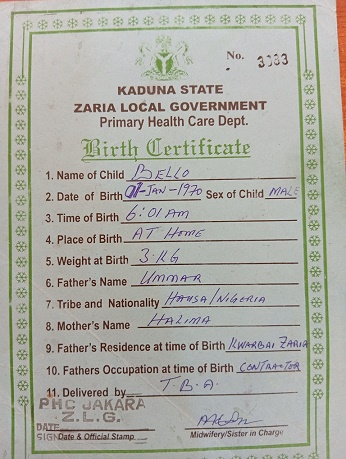 No. 3083
KADUNA STATE
ZARIA LOCAL GOVERNMENT
Primary Health Care Dept.
Birth Certificate
1. Name of Child BELLO
2. Date of Birth 01-JAN-1970 Sex of Child MALE
3. Time of Birth 6:01AM
4. Place of Birth AT HOME
5. Weight at Birth 3.KG
6. Father's Name UMMAR
7. Tribe and Nationality HAUSA/NIGERIA
8. Mother's Name HALIMA
9. Father's Residence at time of Birth KWARBAI ZARIA
10. Fathers Occupation at time of Birth CONTRACTOR
11. Delivered by T.B.A.
PHC JAKARA
Z.L.G.
DATE
SIGN Date & Official Stamp Midwifery/Sister in Charge